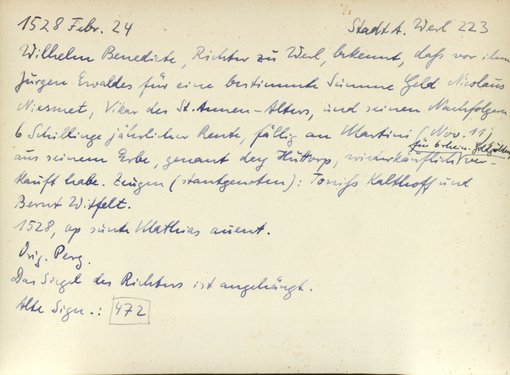 1528 Febr. 24 Stadt A. Werl 223
Wilhelm Benedicte, Richter zu Werl, bekennt, daß vor ihm
Jürgen Ewaldes für eine bestimmte Summe Geld Nicolaus
Niesmet, Vikar des St. Annen-Altars, und seinen Nachfolgern
6 Schillinge jährlicher Rente, fällig an Martini (Nov. 11)
für 6 rhein. Goldgulden
aus seinem Erbe, genant dey Huttorp, wiederkäuflich ver-
kauft habe. Zeugen (stantgenoten): Toniß Kalthoff und
Bernt Witfelt.
1528, op sunte Mathias avent.
Orig. Perg.
Das Siegel des Richters ist angehängt.
Alte Sign.: 472